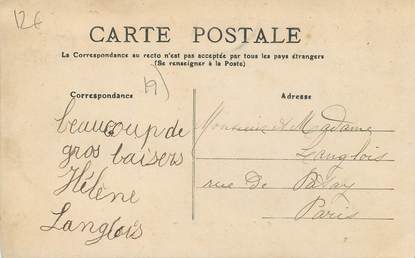 12€
CARTE POSTALE
La Correspondance au recto n'est pas acceptée par tous les pays étrangers
(Se renseigner à la Poste)
Correspondance
Adresse
beaucoup de
gros baisers
Hélène
Langlois
Monsieur et Madame
Langlois
rue de Patay
Paris